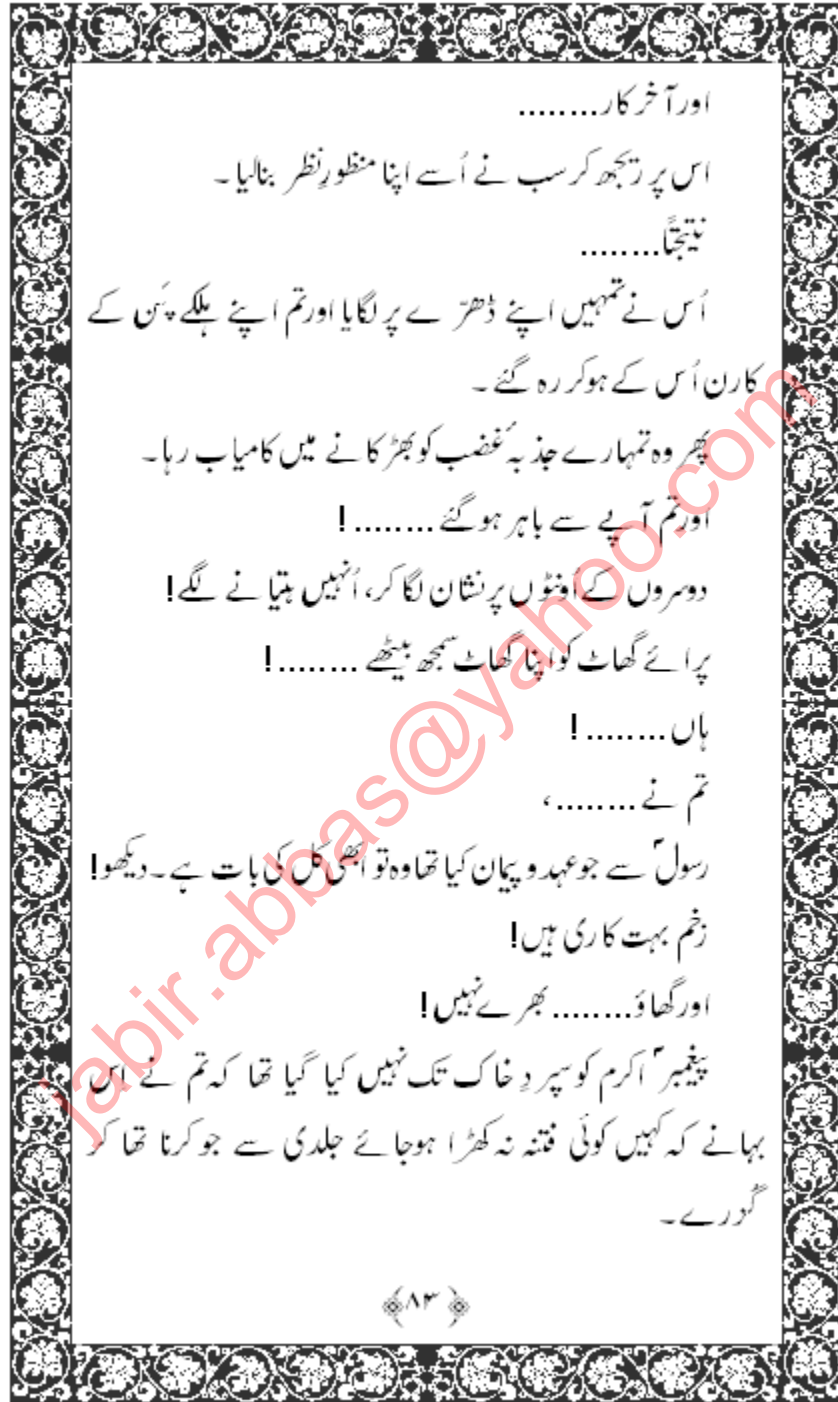 اور آخر کار.........
اس پر ریجھ کر سب نے اُسے اپنا منظورِ نظر بنالیا ۔
نتیجتاً.........
اُس نے تمہیں اپنے ڈھرّے پر لگایا اور تم اپنے ہلکے پَن کے
کارن اُس کے ہوکر رہ گئے ۔
پھر وہ تمہارے جذبۂ غضب کو بھڑکانے میں کامیاب رہا۔
اور تم آپے سے باہر ہو گئے ........!
دوسروں کے اُونٹوں پر نشان لگا کر، اُنہیں ہتیانے لگے!
پرائے گھاٹ کو اپنا گھاٹ سمجھ بیٹھے ........!
ہاں ........!
تم نے ........،
رسولؐ سے جو عہد و پیمان کیا تھا وہ تو ابھی کل کی بات ہے ۔ دیکھو!
زخم بہت کاری ہیں!
اور گھاؤ........ بھرے نہیں!
پیغمبرؐ اکرم کو سپردِ خاک تک نہیں کیا گیا تھا کہ تم نے اس
بہانے کہ کہیں کوئی فتنہ نہ کھڑا ہوجائے جلدی سے جو کرنا تھا کر
گزرے۔
﴿۸۳﴾
jabir.abbas@yahoo.com